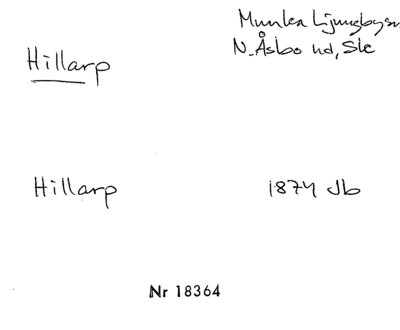 Munka Ljungbysn
N. Åsbo hd, Ske
Hillarp
Hillarp 1874 Jb
Nr 18364